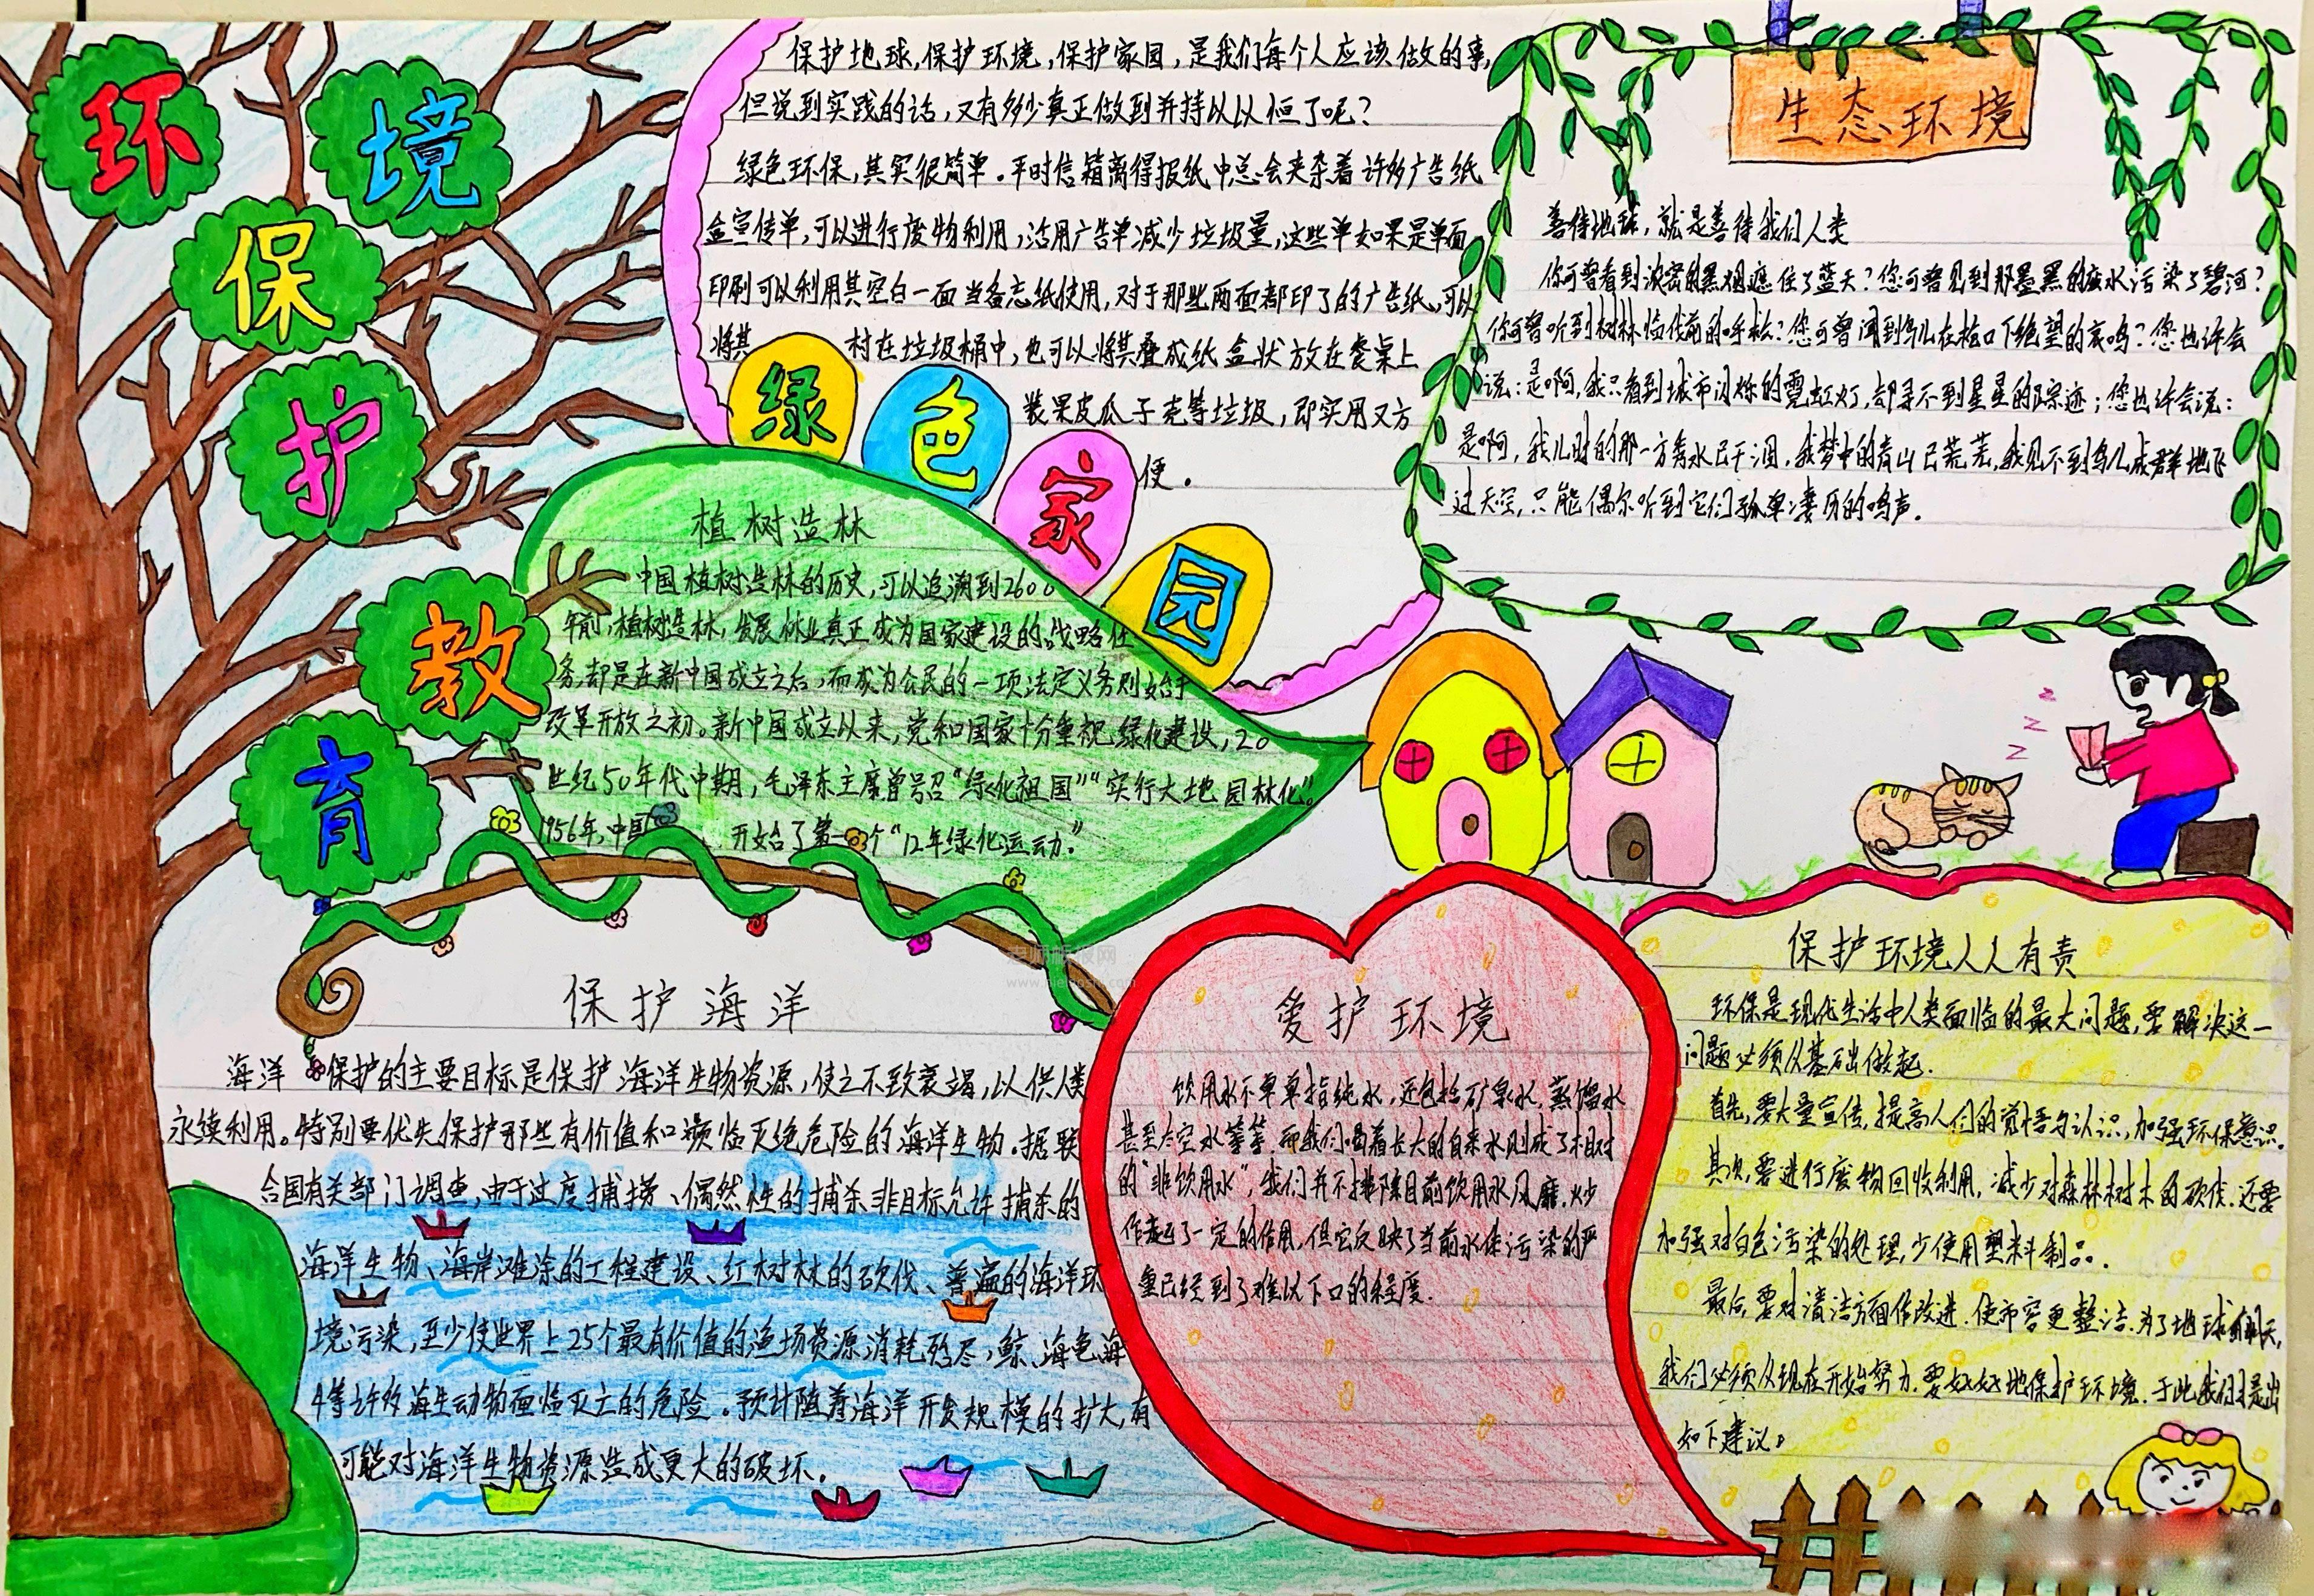 环境保护教育
保护地球,保护环境,保护家园,是我们每个人应该做的事,
但说到实践的话,又有多少真正做到并持以以恒了呢?
绿色环保,其实很简单.平时信箱离得报纸中总会夹杂着许多广告纸
盒宣传单,可以进行废物利用,活用广告单减少垃圾量,这些单如果是单面
印刷可以利用其空白一面当备忘纸使用,对于那些两面都印了的广告纸,可以
将其 村在垃圾桶中,也可以将其叠成纸盒状放在餐桌上
装果皮瓜子壳等垃圾,即实用又方
便.
绿色家园
生态环境
善待地球,就是善待我们人类
你可曾看到浓密的黑烟遮住了蓝天?您可曾见到那墨黑的废水污染了碧河?
你可曾听到树林临伐前的呼救?您可曾闻到鸟儿在枪口下绝望的哀鸣?您也许会
说:是啊,我只看到城市闪烁的霓虹灯,却寻不到星星的踪迹;您也许会说:
是啊,我儿时的那一方秀水已干涸,我梦中的青山已荒芜,我见不到鸟儿成群地飞
过天空,只能偶尔听到它们孤单凄厉的鸣声.
植树造林
中国植树造林的历史,可以追溯到2600
年前,植树造林,发展林业真正成为国家建设的战略任
务,却是在新中国成立之后,而成为公民的一项法定义务则始于
改革开放之初。新中国成立以来,党和国家十分重视绿化建设,20
世纪50年代中期,毛泽东主席曾号召“绿化祖国”“实行大地园林化”。
1956年,中国 开始了第一个“12年绿化运动.”
保护海洋
海洋 保护的主要目标是保护海洋生物资源,使之不致衰竭,以供人类
永续利用。特别要优先保护那些有价值和濒临灭绝危险的海洋生物.据联
合国有关部门调查,由于过度捕捞、偶然性的捕杀非目标允许捕杀的
海洋生物、海岸滩涂的工程建设、红树林的砍伐、普遍的海洋环
境污染,至少使世界上25个最有价值的渔场资源消耗殆尽,鲸、海龟、海
牛等许多海生动物面临灭亡的危险.预计随着海洋开发规模的扩大,有
可能对海洋生物资源造成更大的破坏.
爱护环境
饮用水不单单指纯水,还包括矿泉水.蒸馏水
甚至太空水等等.而我们喝着长大的自来水则成了相对
的“非饮用水”,我们并不排除目前饮用水风靡.炒
作起了一定的作用,但它反映了当前水体污染的严
重已经到了难以下口的程度.
保护环境人人有责
环保是现代生活中人类面临的最大问题,要解决这一
问题必须从基础做起.
首先,要大量宣传,提高人们的觉悟与认识,加强环保意识.
其次,要进行废物回收利用,减少对森林树木的砍伐.还要
加强对白色污染的处理,少使用塑料制品.
最后,要对清洁方面作改进.使市容更整洁.为了地球的明天,
我们必须从现在开始努力.要好好地保护环境.于此我们提出
如下建议。